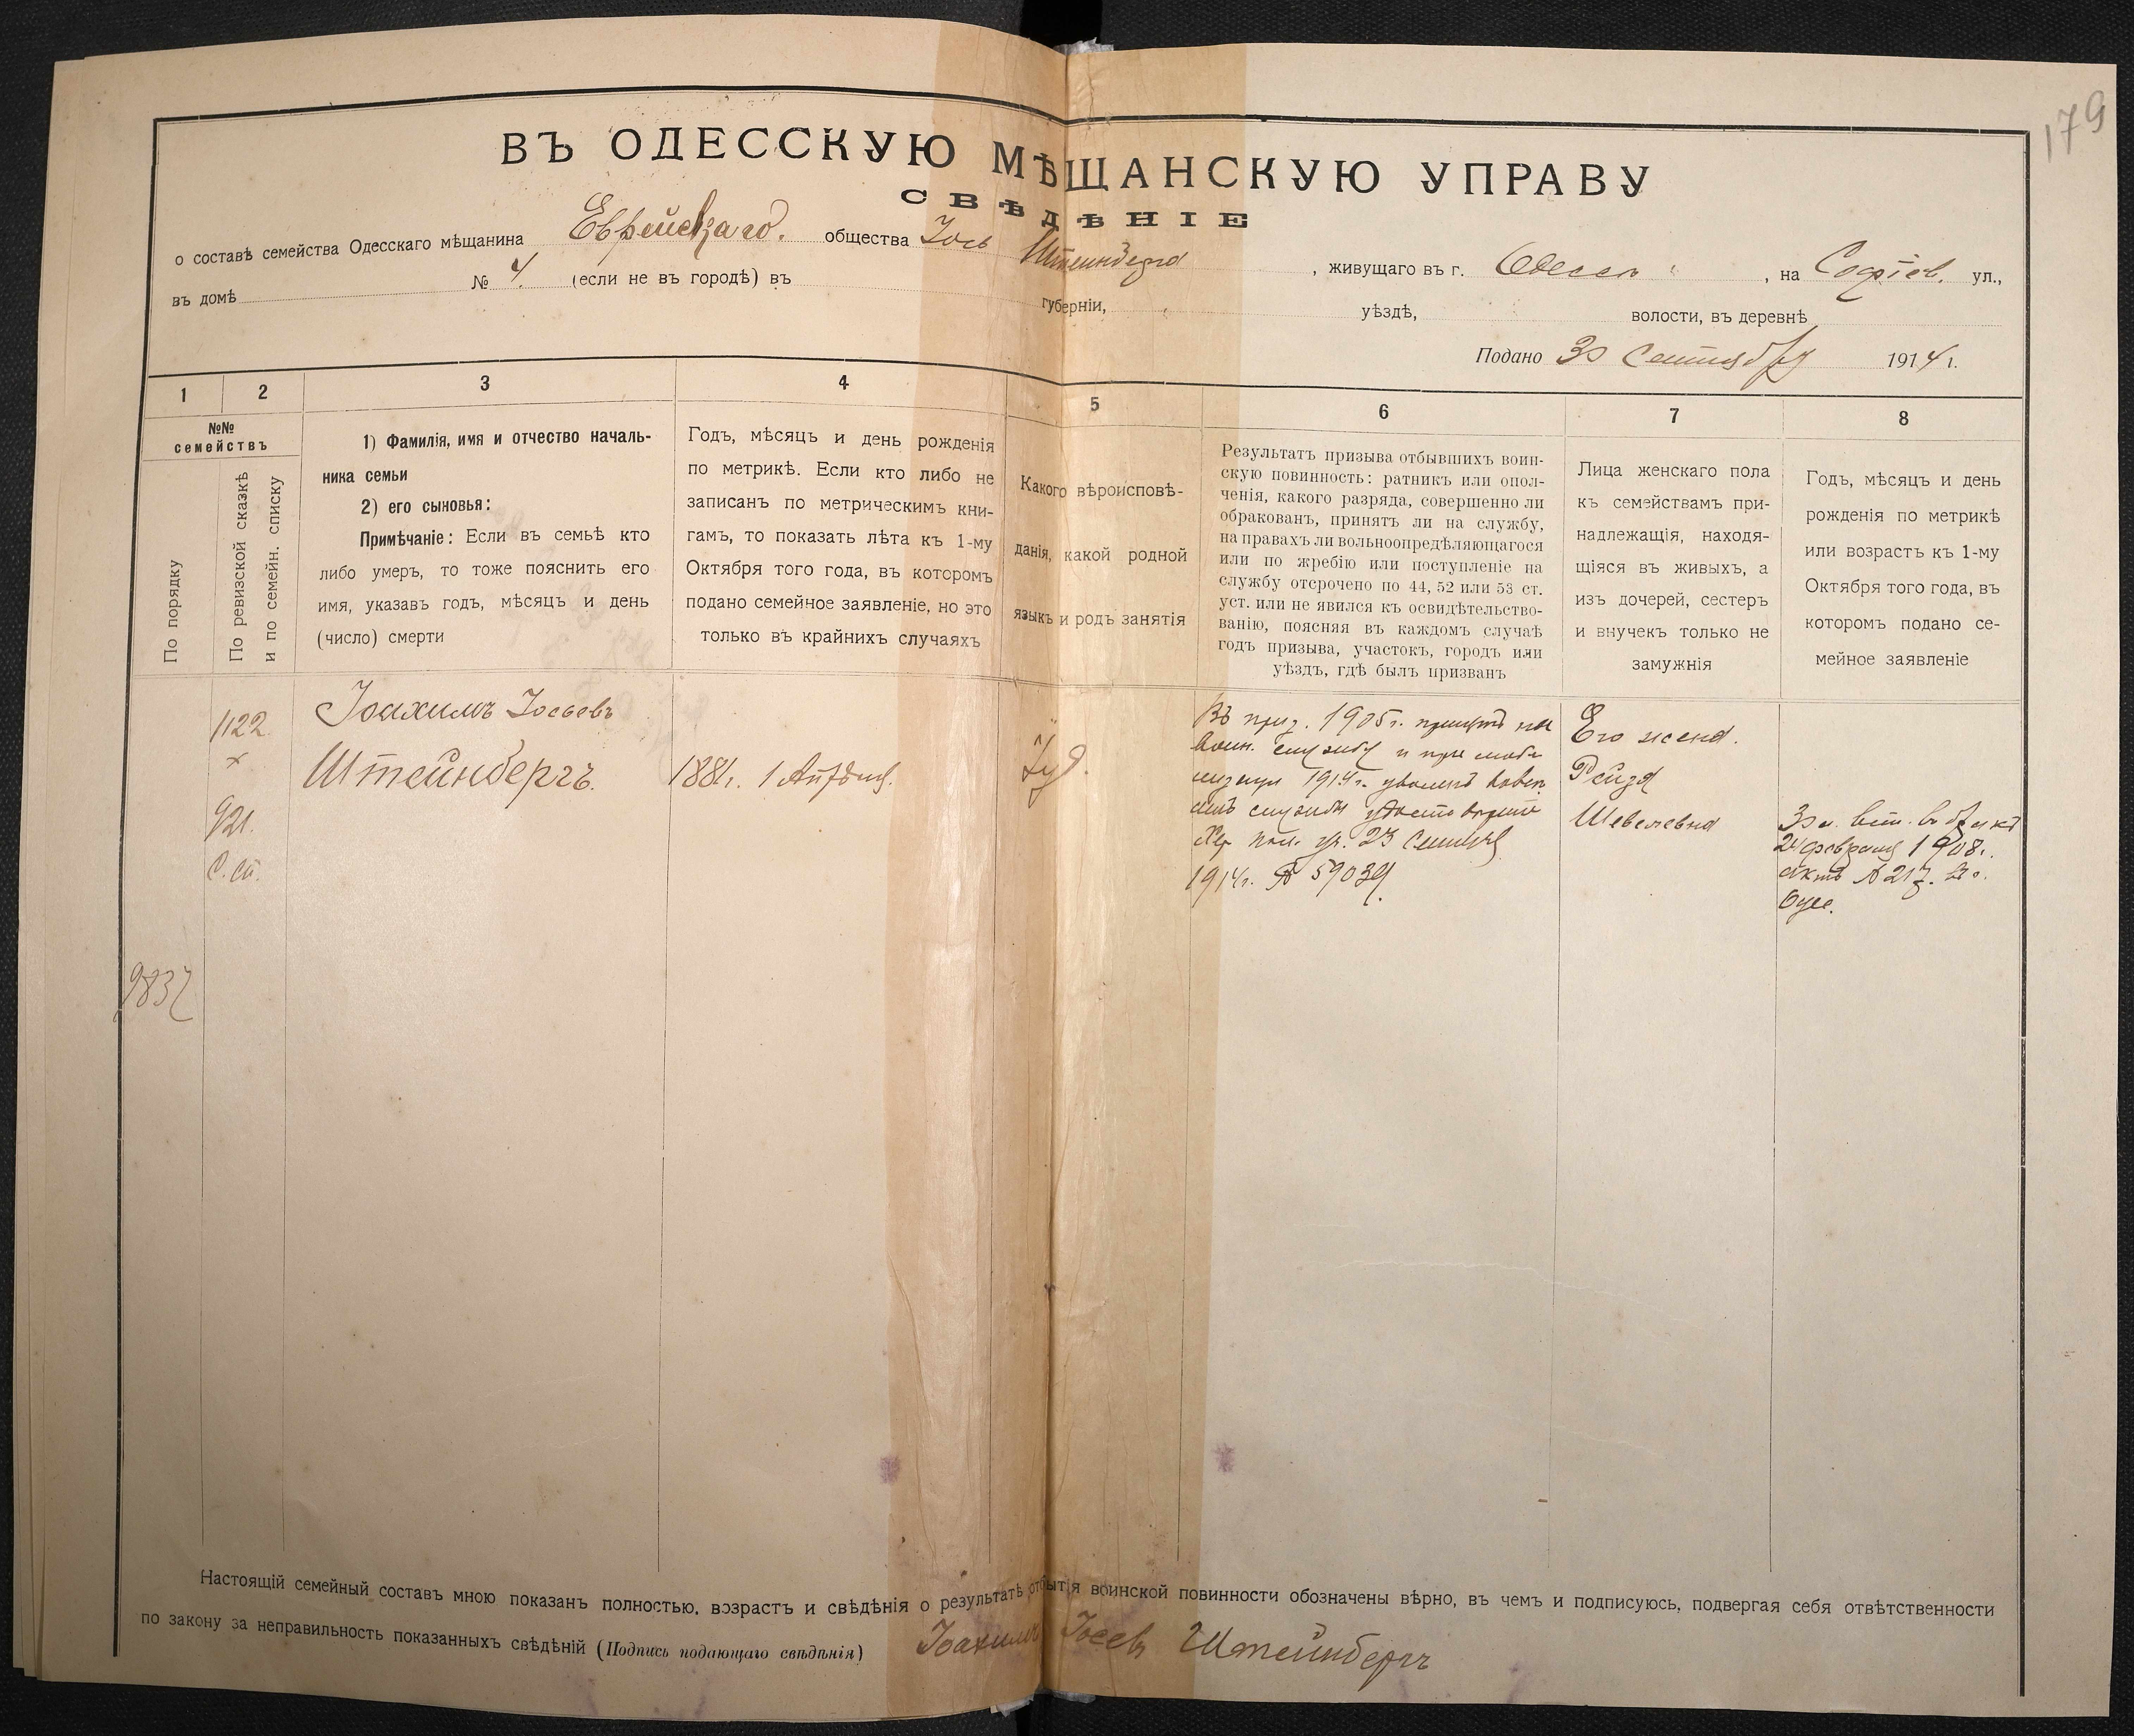 179
ВЪ ОДЕССКУЮ МѢЩАНСКУЮ УПРАВУ
СВѢДѢНІЕ
о составѣ семейства Одесскаго мѣщанина Еврейскаго. общества Іось Штейнберга, живущаго въ г. Одессѣ, на Софіев. ул.,
въ домѣ № 4 (если не въ городѣ) въ губерніи, уѣздѣ, волости, въ деревнѣ
Подано 30 Сентября 1914 г.
1 2 3 4 5 6 7 8
№№
семействъ
По порядку
По ревизской сказкѣ
и по семейн. списку
1) Фамилія, имя и отчество началь-
ника семьи
2) его сыновья:
Примѣчаніе: Если въ семьѣ кто
либо умеръ, то тоже пояснить его
имя, указавъ годъ, мѣсяцъ и день
(число) смерти
Годъ, мѣсяцъ и день рожденія
по метрикѣ. Если кто либо не
записанъ по метрическимъ кни-
гамъ, то показать лѣта къ 1-му
Октября того года, въ которомъ
подано семейное заявленіе, но это
только въ крайнихъ случаяхъ
Какого вѣроисповѣ-
данія, какой родной
языкъ и родъ занятія
Результатъ призыва отбывшихъ воин-
скую повинность: ратникъ или опол-
ченія, какого разряда, совершенно ли
обракованъ, принятъ ли на службу,
на правахъ ли вольноопредѣляющагося
или по жребію или поступленіе на
службу отсрочено по 44, 52 или 53 ст.
уст. или не явился къ освидѣтельство-
ванію, поясняя въ каждомъ случаѣ
годъ призыва, участокъ, городъ или
уѣздъ, гдѣ былъ призванъ
Лица женскаго пола
къ семействамъ при-
надлежащія, находя-
щіяся въ живыхъ, а
изъ дочерей, сестеръ
и внучекъ только не
замужнія
Годъ, мѣсяцъ и день
рожденія по метрикѣ
или возрастъ къ 1-му
Октября того года, въ
которомъ подано се-
мейное заявленіе
1122
х
921.
С. сп.
9837
Іоахимъ Іосьевъ
Штейнбергъ.
1881г. 1 Апрѣля.
Іуд.
Въ приз. 1905г. принятъ на
воин. службу и при моби
лизаціи 1914г. уволенъ вовсе
отъ службы
23 Сентября
1914г. № 59039
Его жена.
Рейза
Шевелевна
30 л. вст. въ бракъ
24 февраля 1908г.
актъ № 217.
Одес.
Настоящій семейный составъ мною показанъ полностью, возрастъ и свѣдѣнія о результатѣ отбытія воинской повинности обозначены вѣрно, въ чемъ и подписуюсь, подвергая себя отвѣтственности
по закону за неправильность показанныхъ свѣдѣній (Подпись подающаго свѣдѣнія) Іоахимъ Іосевъ Штейнбергъ